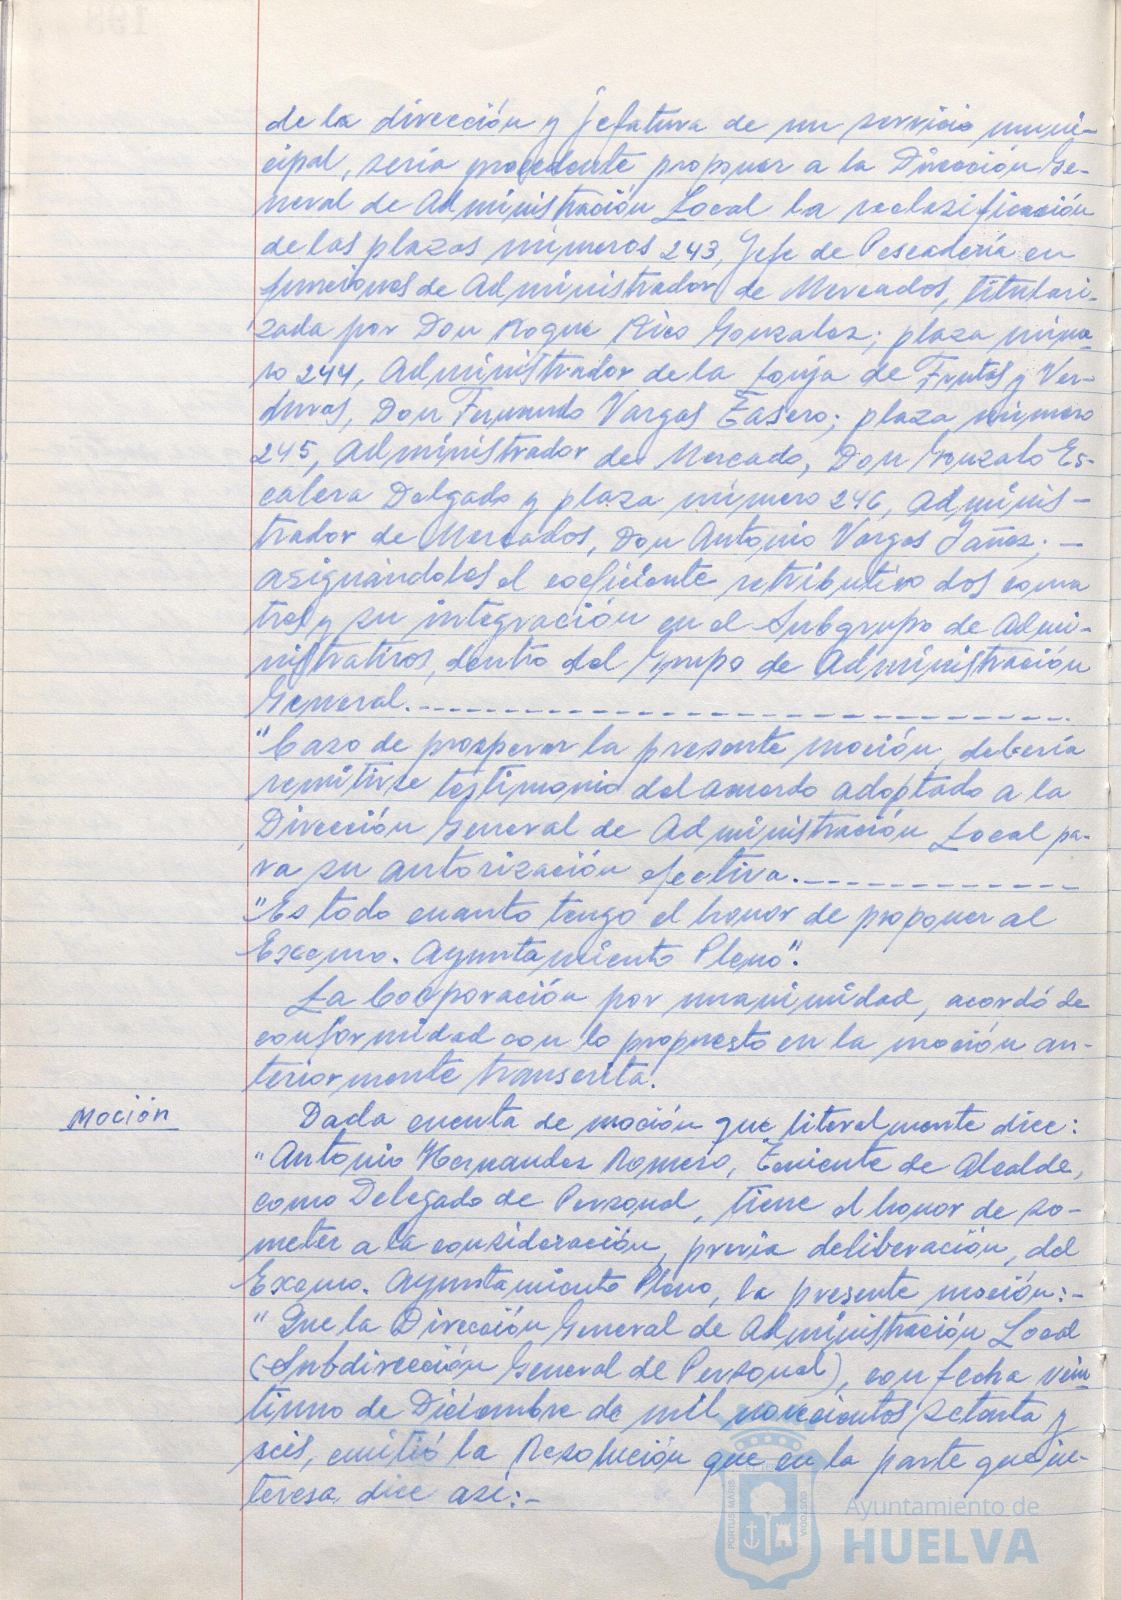 de la dirección y jefatura de un servicio muni-
cipal, sería procedente proponer a la Dirección Ge-
neral de Administración Local la reclasificación
de las plazas números 243, Jefe de Pescadería en
funciones de Administrador de Mercados, titulari-
zada por Don Roque Rico Gonzalez; plaza núme-
ro 244, Administrador de la Lonja de Frutas y Ver-
duras, Don Fernando Vargas Easero; plaza número
245, Administrador de Mercado, Don Gonzalo Es-
calera Delgado y plaza número 246, Adminis-
trador de Mercados, Don Antonio Vargas Yañez; -
asignándoles el coeficiente retributivo dos coma
tres y su integración en el Subgrupo de Admi-
nistrativos, dentro del Grupo de Administración
General.
"Caso de prosperar la presente moción, debería
remitirse testimonio del acuerdo adoptado a la
Dirección General de Administración Local pa-
ra su autorización efectiva.
"Es todo cuanto tengo el honor de proponer al
Excmo. Ayuntamiento Pleno".
La Corporación por unanimidad, acordó de
conformidad con lo propuesto en la moción an-
teriormente transcrita.
Moción
Dada cuenta de moción que literalmente dice:
"Antonio Hernandez Romero, Teniente de Alcalde,
como Delegado de Personal, tiene el honor de so-
meter a la consideración, previa deliberación, del
Excmo. Ayuntamiento Pleno, la presente moción:-
"Que la Dirección General de Administración Local
(Subdirección General de Personal), con fecha vein
tiuno de Diciembre de mil novecientos setenta y
seis, emitió la Resolución que en la parte que in-
teresa dice asi:-
PORTUS MARIS
CUSTODIA
Ayuntamiento de
HUELVA